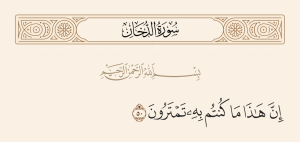 سُورَةُ الدُّخَانِ
بِسْمِ اللَّهِ الرَّحْمَٰنِ الرَّحِيمِ
إِنَّ هَٰذَا مَا كُنتُم بِهِۦ تَمْتَرُونَ ٥٠